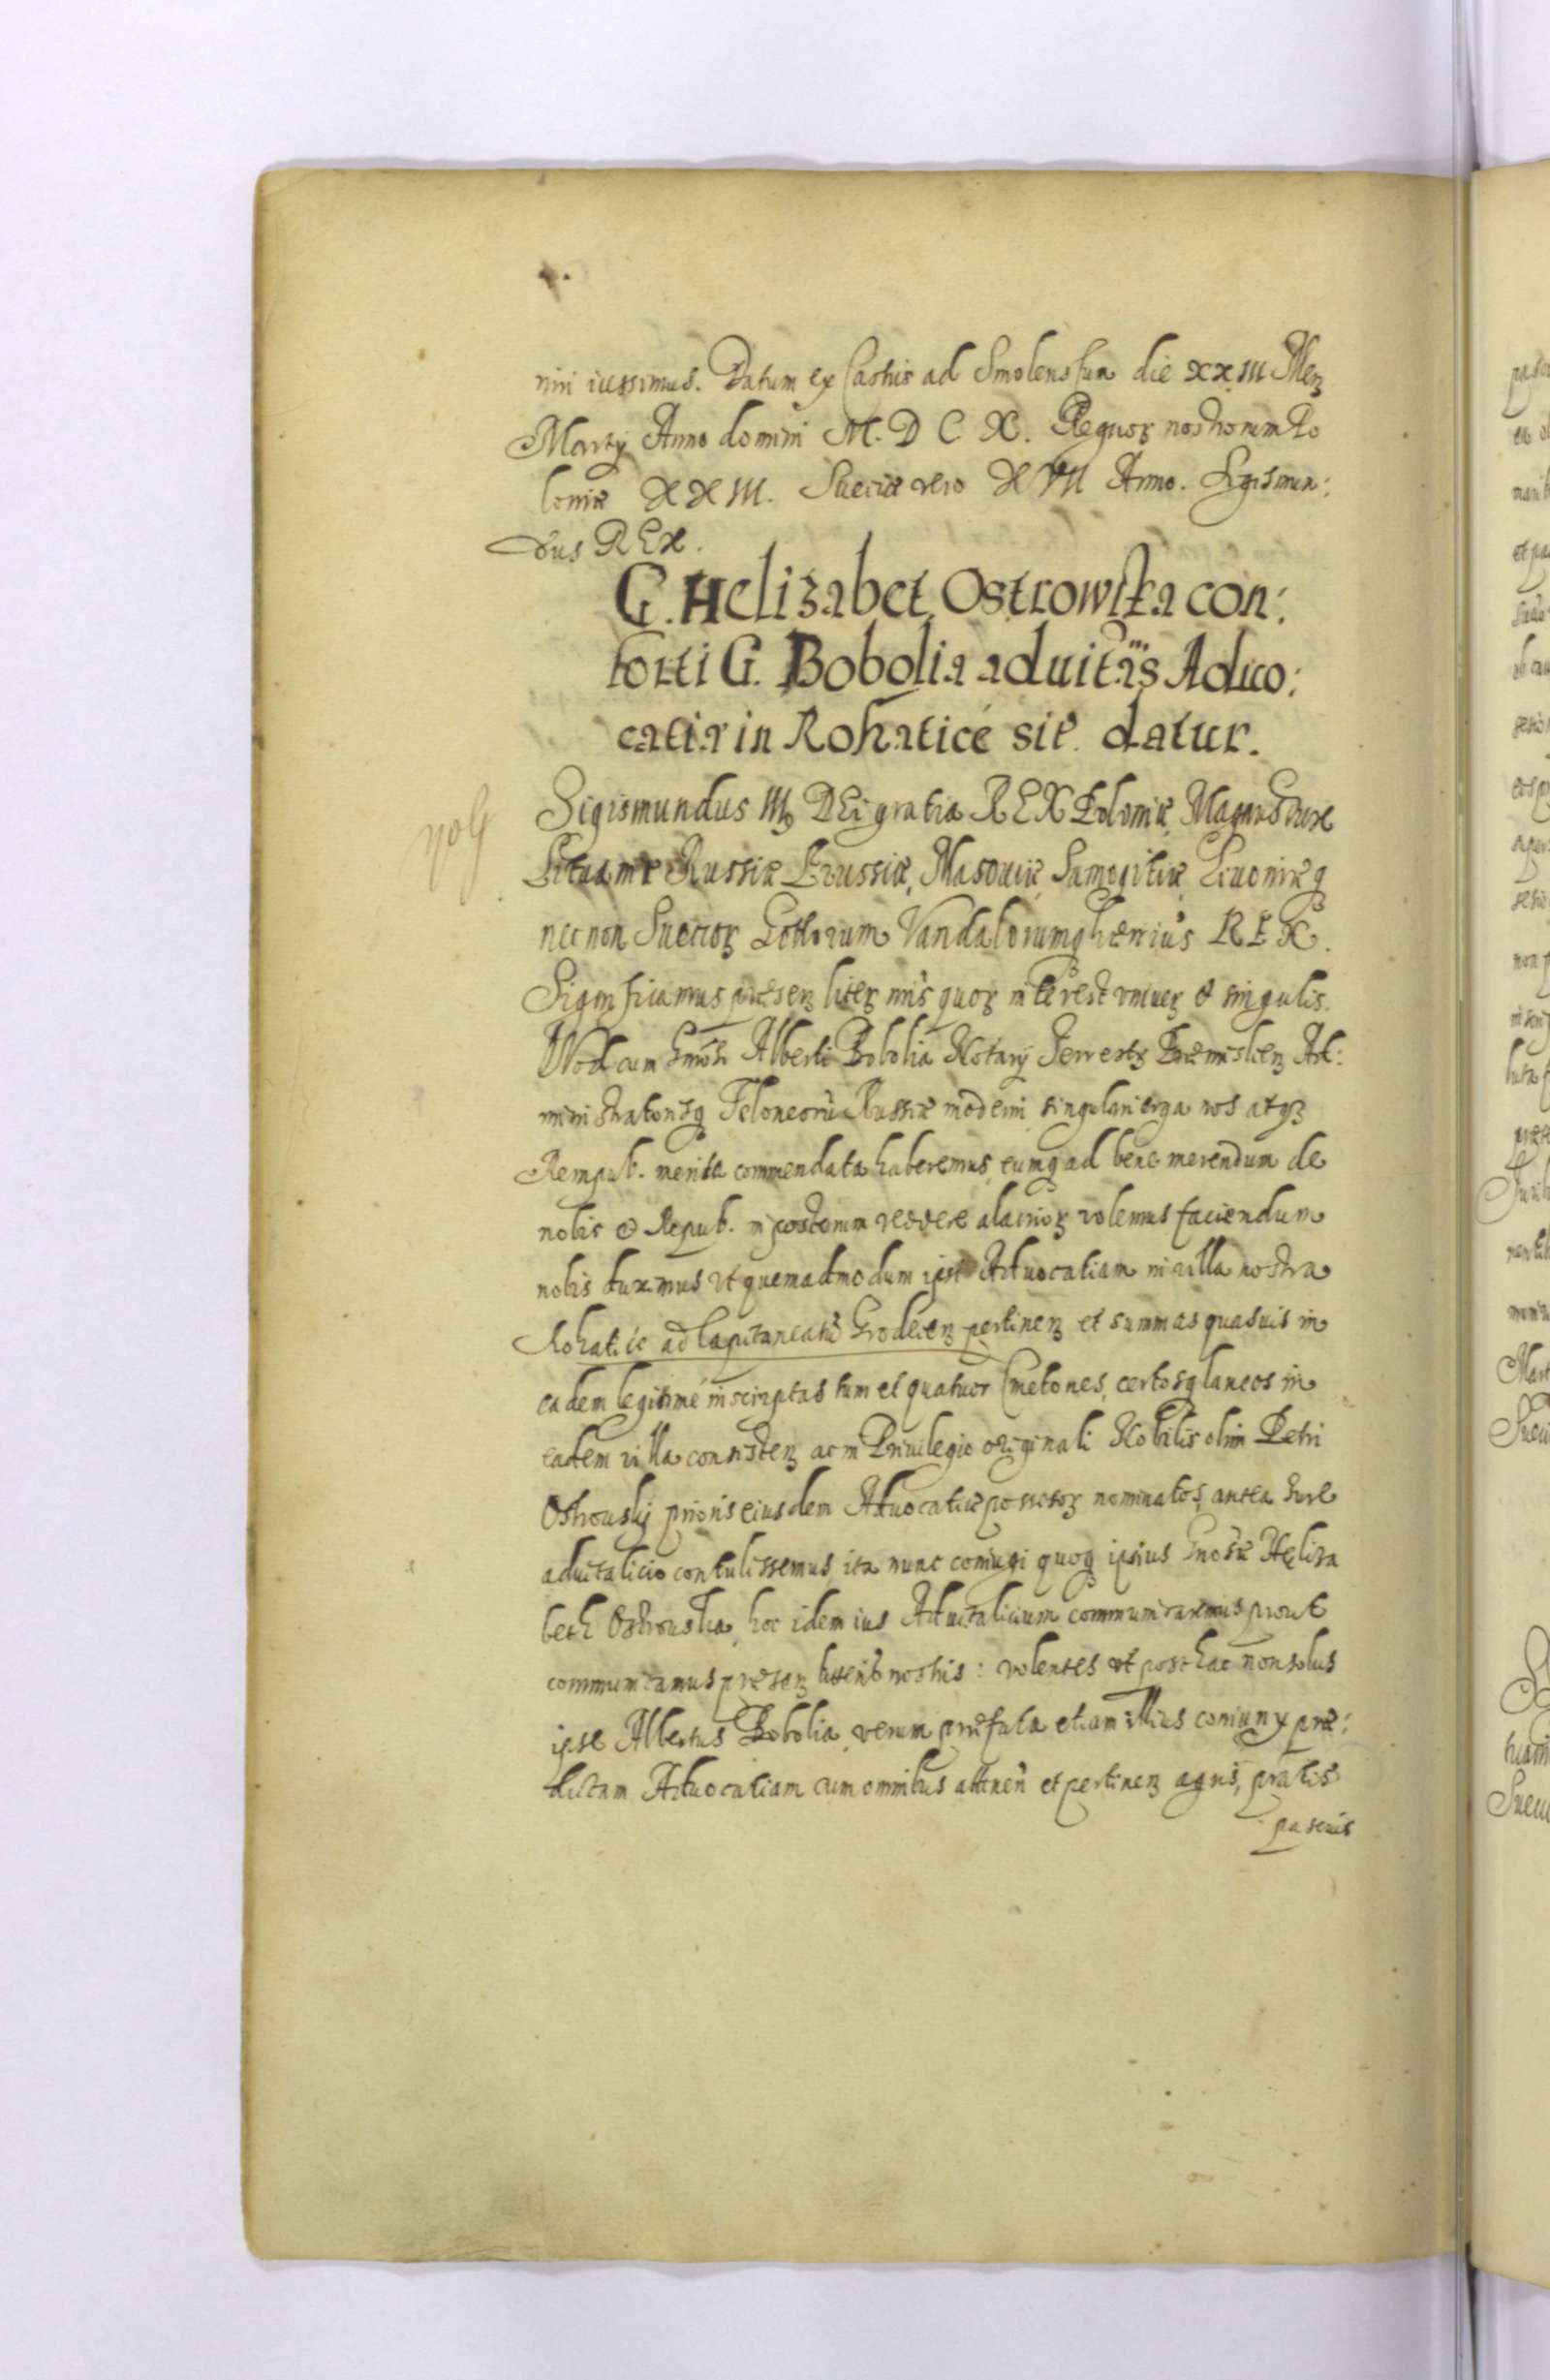 niri iussimus. Datum ex Castris ad Smolenscum die XXIII Menꝫ
Martij Anno domini M. D C X. Regnoꝝ nostrorum Po
loniæ XXIII. Sueciæ vero XVII Anno. Sigismun:
dus REX.
G. Helizabet Ostrowska con:
sorti G. Bobolia aduitāīs Aduo:
catia in Rohaticé sit̄ datur.
Sigismundus IIIꝰ DEi gratia REX Poloniæ, Magnus Dux
Lituaniæ Russiæ Prussiæ, Masouiæ, Samogitiæ, Liuoniæqꝫ
nec non Suecoꝝ Gottorum Vandalorumqꝫ hæreius REX.
Significamus præsenꝫ literꝫ nrīs quoꝝ interest vniuerꝫ & singulis.
Quod cum Gnōsi Alberti Bobolia Notarij Terrestrꝫ Præmislienꝫ Ad:
ministratorisqꝫ Teloneorū Russiæ moderni singulari erga nos atqꝫ
Rempub. merita commendata haberemus, eumqꝫ ad bene merendum de
nobis & Repub. in posterum reddere alacrioꝝ volemus faciendum
nobis duximus vt quemadmodum ipsi Aduocatiam in villa nostra
Rohatice ad Capitaneatū Grodecenꝫ pertinenꝫ et summas quasuis in
eadem legitimé inscriptas tum et quatuor Cmetones, certosqꝫ laneos in
eadem villa consistenꝫ ac in Priuilegio originali Nobilis olim Petri
Ostrouskij prioris eiusdem Aduocatiæ possesoꝝ nominatos, antea Iure
aduitalicio contulissemus, ita nunc coniugi quoqꝫ ipsius Gnōsæ Heliza
beth Ostrouska, hoc idem ius Aduitalicium communicaremus prout
communicamus præsenꝫ litterīs nostris: volentes vt posthac non solus
ipse Albertus Bobolia, verum præfata etiam illius coniunx præ:
dictam Aduocatiam cum omnibus attinen̄ et pertinenꝫ agris, pratis
pascuis